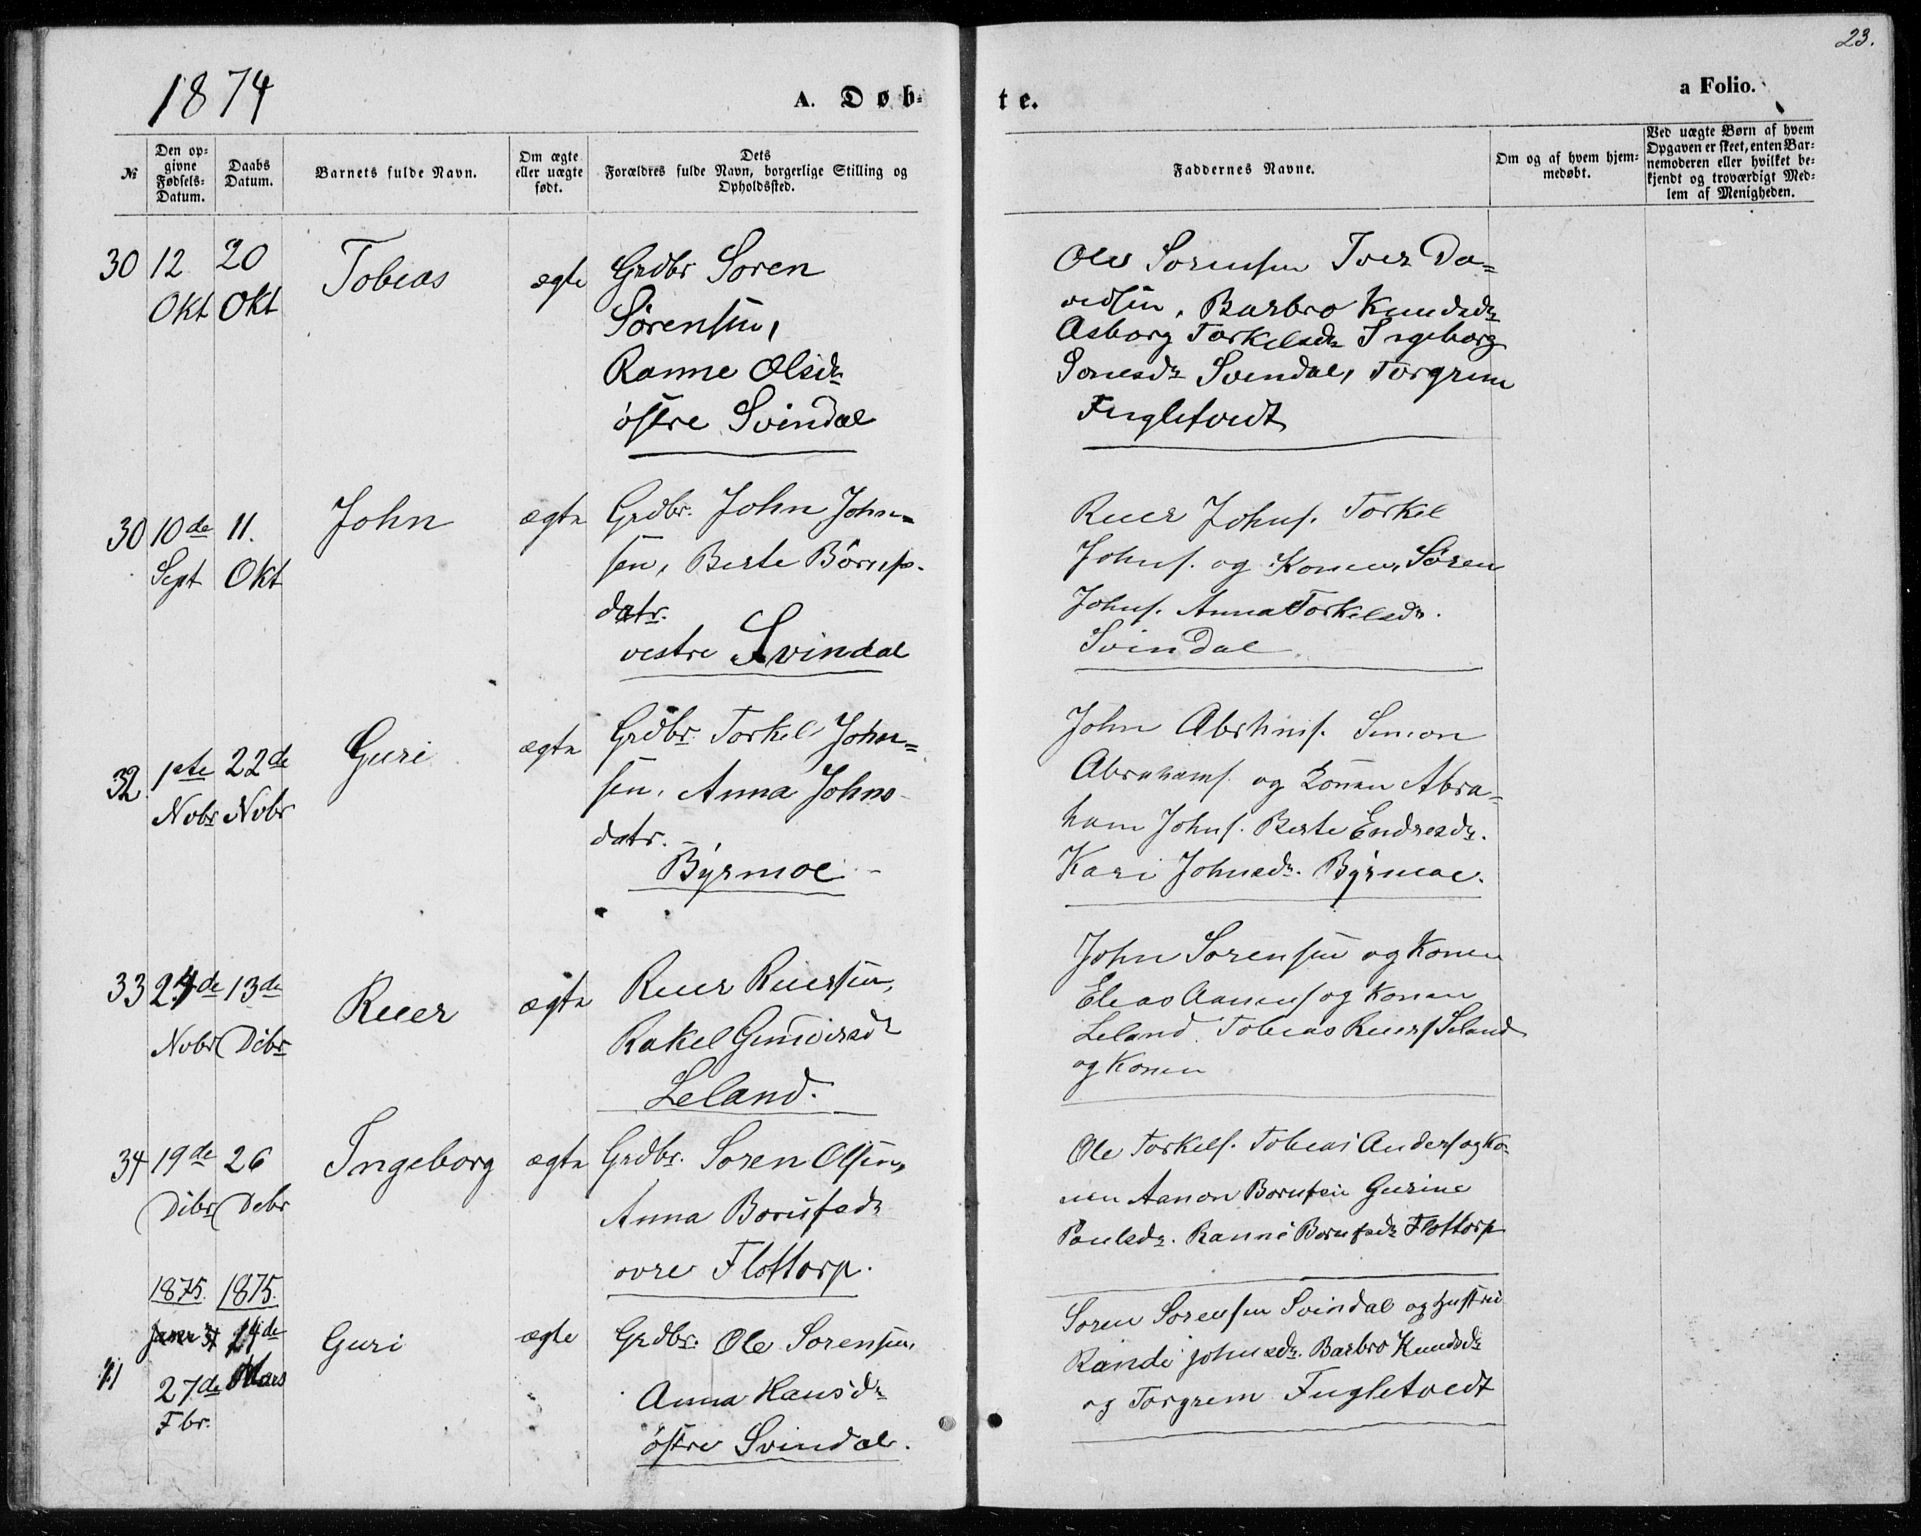 23.
1874
A. Døb-
te.
a Folio.
№
Den op-
givne
Fødsels-
Datum.
Daabs
Datum.
Barnets fulde Navn.
Om ægte
eller uægte
født.
Dets
Forældres fulde Navn, borgerlige Stilling og
Opholdssted.
Faddernes Navne.
Om og af hvem hjem-
medøbt.
Ved uægte Børn af hvem
Opgaven er skeet, enten Bar-
nemoderen eller hvilket be-
kjendt og troværdigt Med-
lem af Menigheden.
30 12 Okt
20 Okt
Tobias
ægte
Grdbr Soren
Sörensen,
Ranne Olsdr
östre Svindal
Ole Sorensen Iver Da=
vidsen, Barbro Knudsdr
Asborg Torkelsdr Ingeborg
Svendal, Torgrim
Fugletvedt
30 10de Sept
11. Okt
John
ægte
Grdbr. John John=
sen, Berte Börufs-
datr.
vestre Svindal
Reier Johns. Torkel
Johns. og Konen, Sören
Johns. Anna Torkelsdr.
Svindal
32 1ste Nobr
22de Nobr
Guri
ægte
Grdbr. Torkel John=
sen, Anna Johns-
datr.
Byrmoe
John Abrhms. Simon
Abrahams. og Konen Abra=
ham Johns. Berte Endresdr.
Kari Johnsdr. Byrmoe.
33 24de Nobr
13de Debr
Reier
ægte
Reier Reiersen,
Rakel Gunversdr
Leland.
John Sorensen og Konen
Elias Aanens og Konen
Leland. Tobias Reiers Leland
og Konen
34 19de Debr
26 Debr
Ingeborg
ægte
Grdbr. Soren Olsen,
Anna Borufsdr
ovre Flottorp.
Ole Torkels. Tobias Anders og Ko-
nen Aanon Borufsen Gurine
Poulsdr. Ranne Borufsdr Flottorp
1875. 1875.
Janr 31
27de Fbr.
14de Mars
Guri
ægte
Grdbr. Ole Sorensen,
Anna Hansdr
östre Svindal.
Soren Sorensen Svindal og Hustru
Randi Johnsdr. Barbro Knudsdr
og Torgrem Fugletvedt